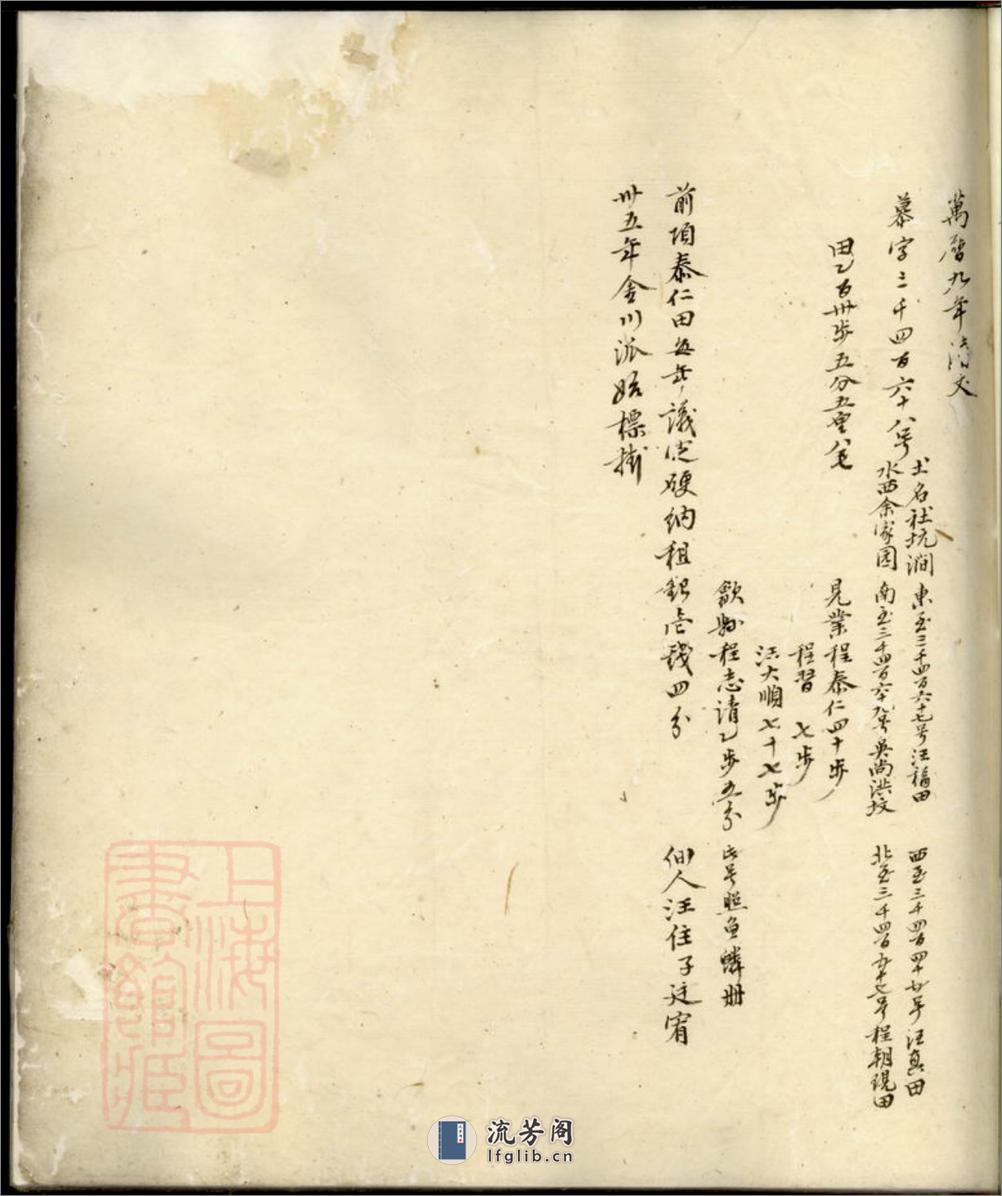 萬曆九年清丈
慕字三千四百六十八号
土名社坑澗
水西余家園
東至三千四百六十七号汪福田
南至三千四百六十九号吴尚洪坟
西至三千四百四十 号汪真田
北至三千四百五十七号程朝現田
田乙百卅步五分五里八毛
見業程泰仁四十步
程習 七步
汪大順七十七步
歙縣程志清乙步五分
此号照魚鱗册
前項泰仁田 年議定硬納租銀壱錢四分
佃人汪住子廷宥
卅五年金川派始標掛
上海圖書館藏
流芳阁
lfglib.cn